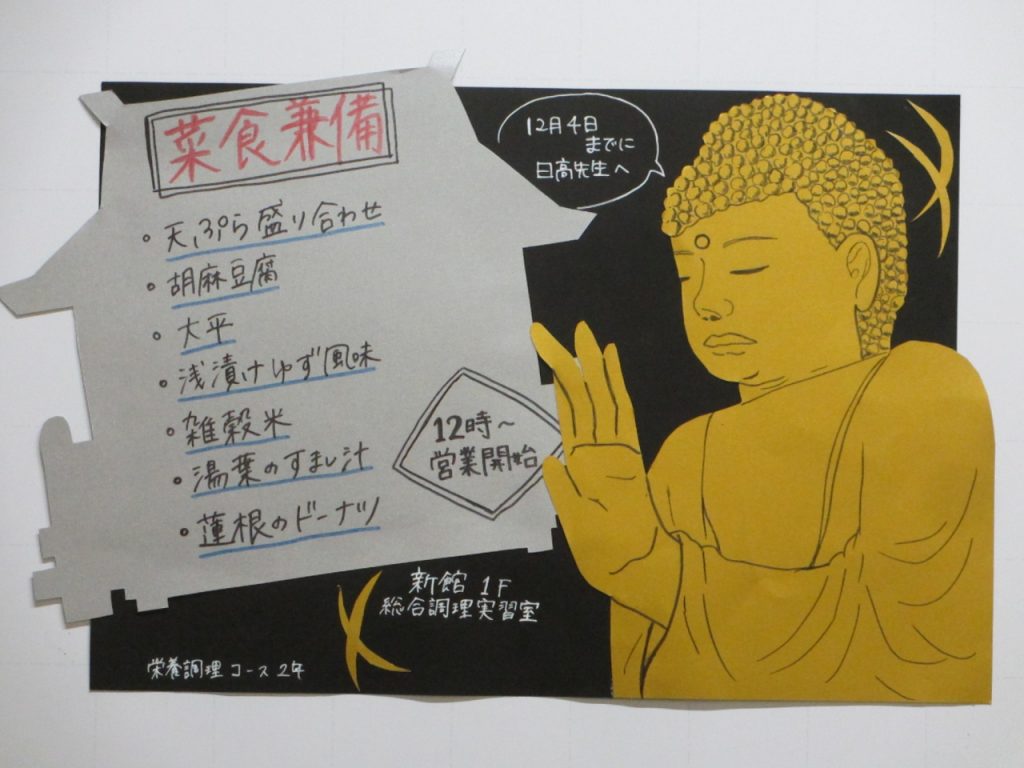 菜食兼備
。天ぷら盛り合わせ
。胡麻豆腐
。大平
。浅漬けゆず風味
。雑穀米
。湯葉のすまし汁
。蓮根のドーナツ
12時～
営業開始
12月4日
までに
日高先生へ
新館 1F
総合調理実習室
栄養調理コース2年